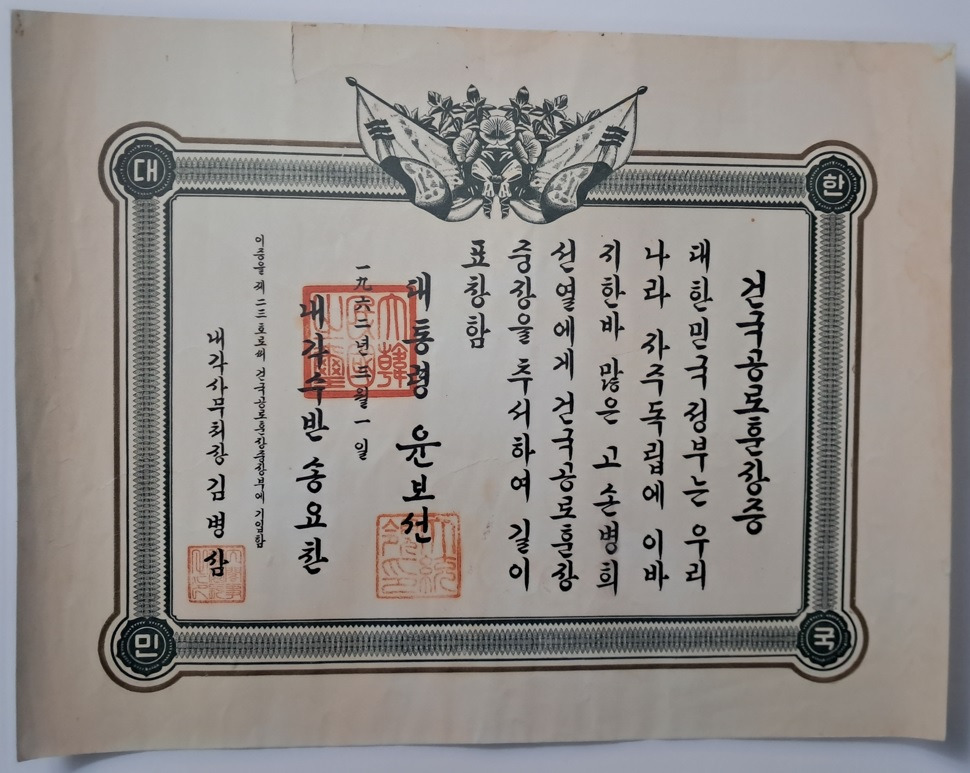 대 한
민 국
건국공로훈장증
대한민국정부는 우리
나라 자주독립에 이바
지한바 많은 고 손병희
선열에게 건국공로훈장
중장을 추서하여 길이
표창함
대통령 윤보선
一九六二년 三월 一일
내각수반 송요찬
이증을 제 二三 호로써 건국공로훈장증장부에 기입함
내각사무처장 김병삼